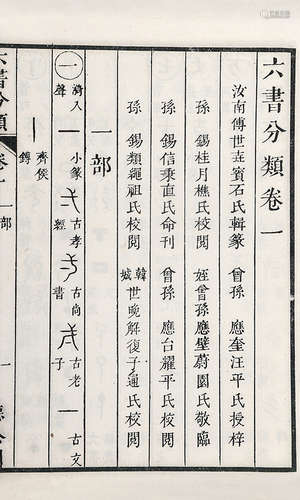 六書分類卷一
汝南傅世垚賓石氏輯篆 曾孫 應奎汪平氏授梓
孫 錫桂月樵氏校閱 姪曾孫應壁蔚園氏敬臨
孫 錫信乘直氏命刊 曾孫 應台耀平氏校閱
孫 錫類繩祖氏校閱 韓城 世晚解復子通氏校閱
一部
一 漪入聲 一 小篆 古孝經 古尚書 古老子 一 古文
齊侯鎛
六書分類 卷一 一部 一